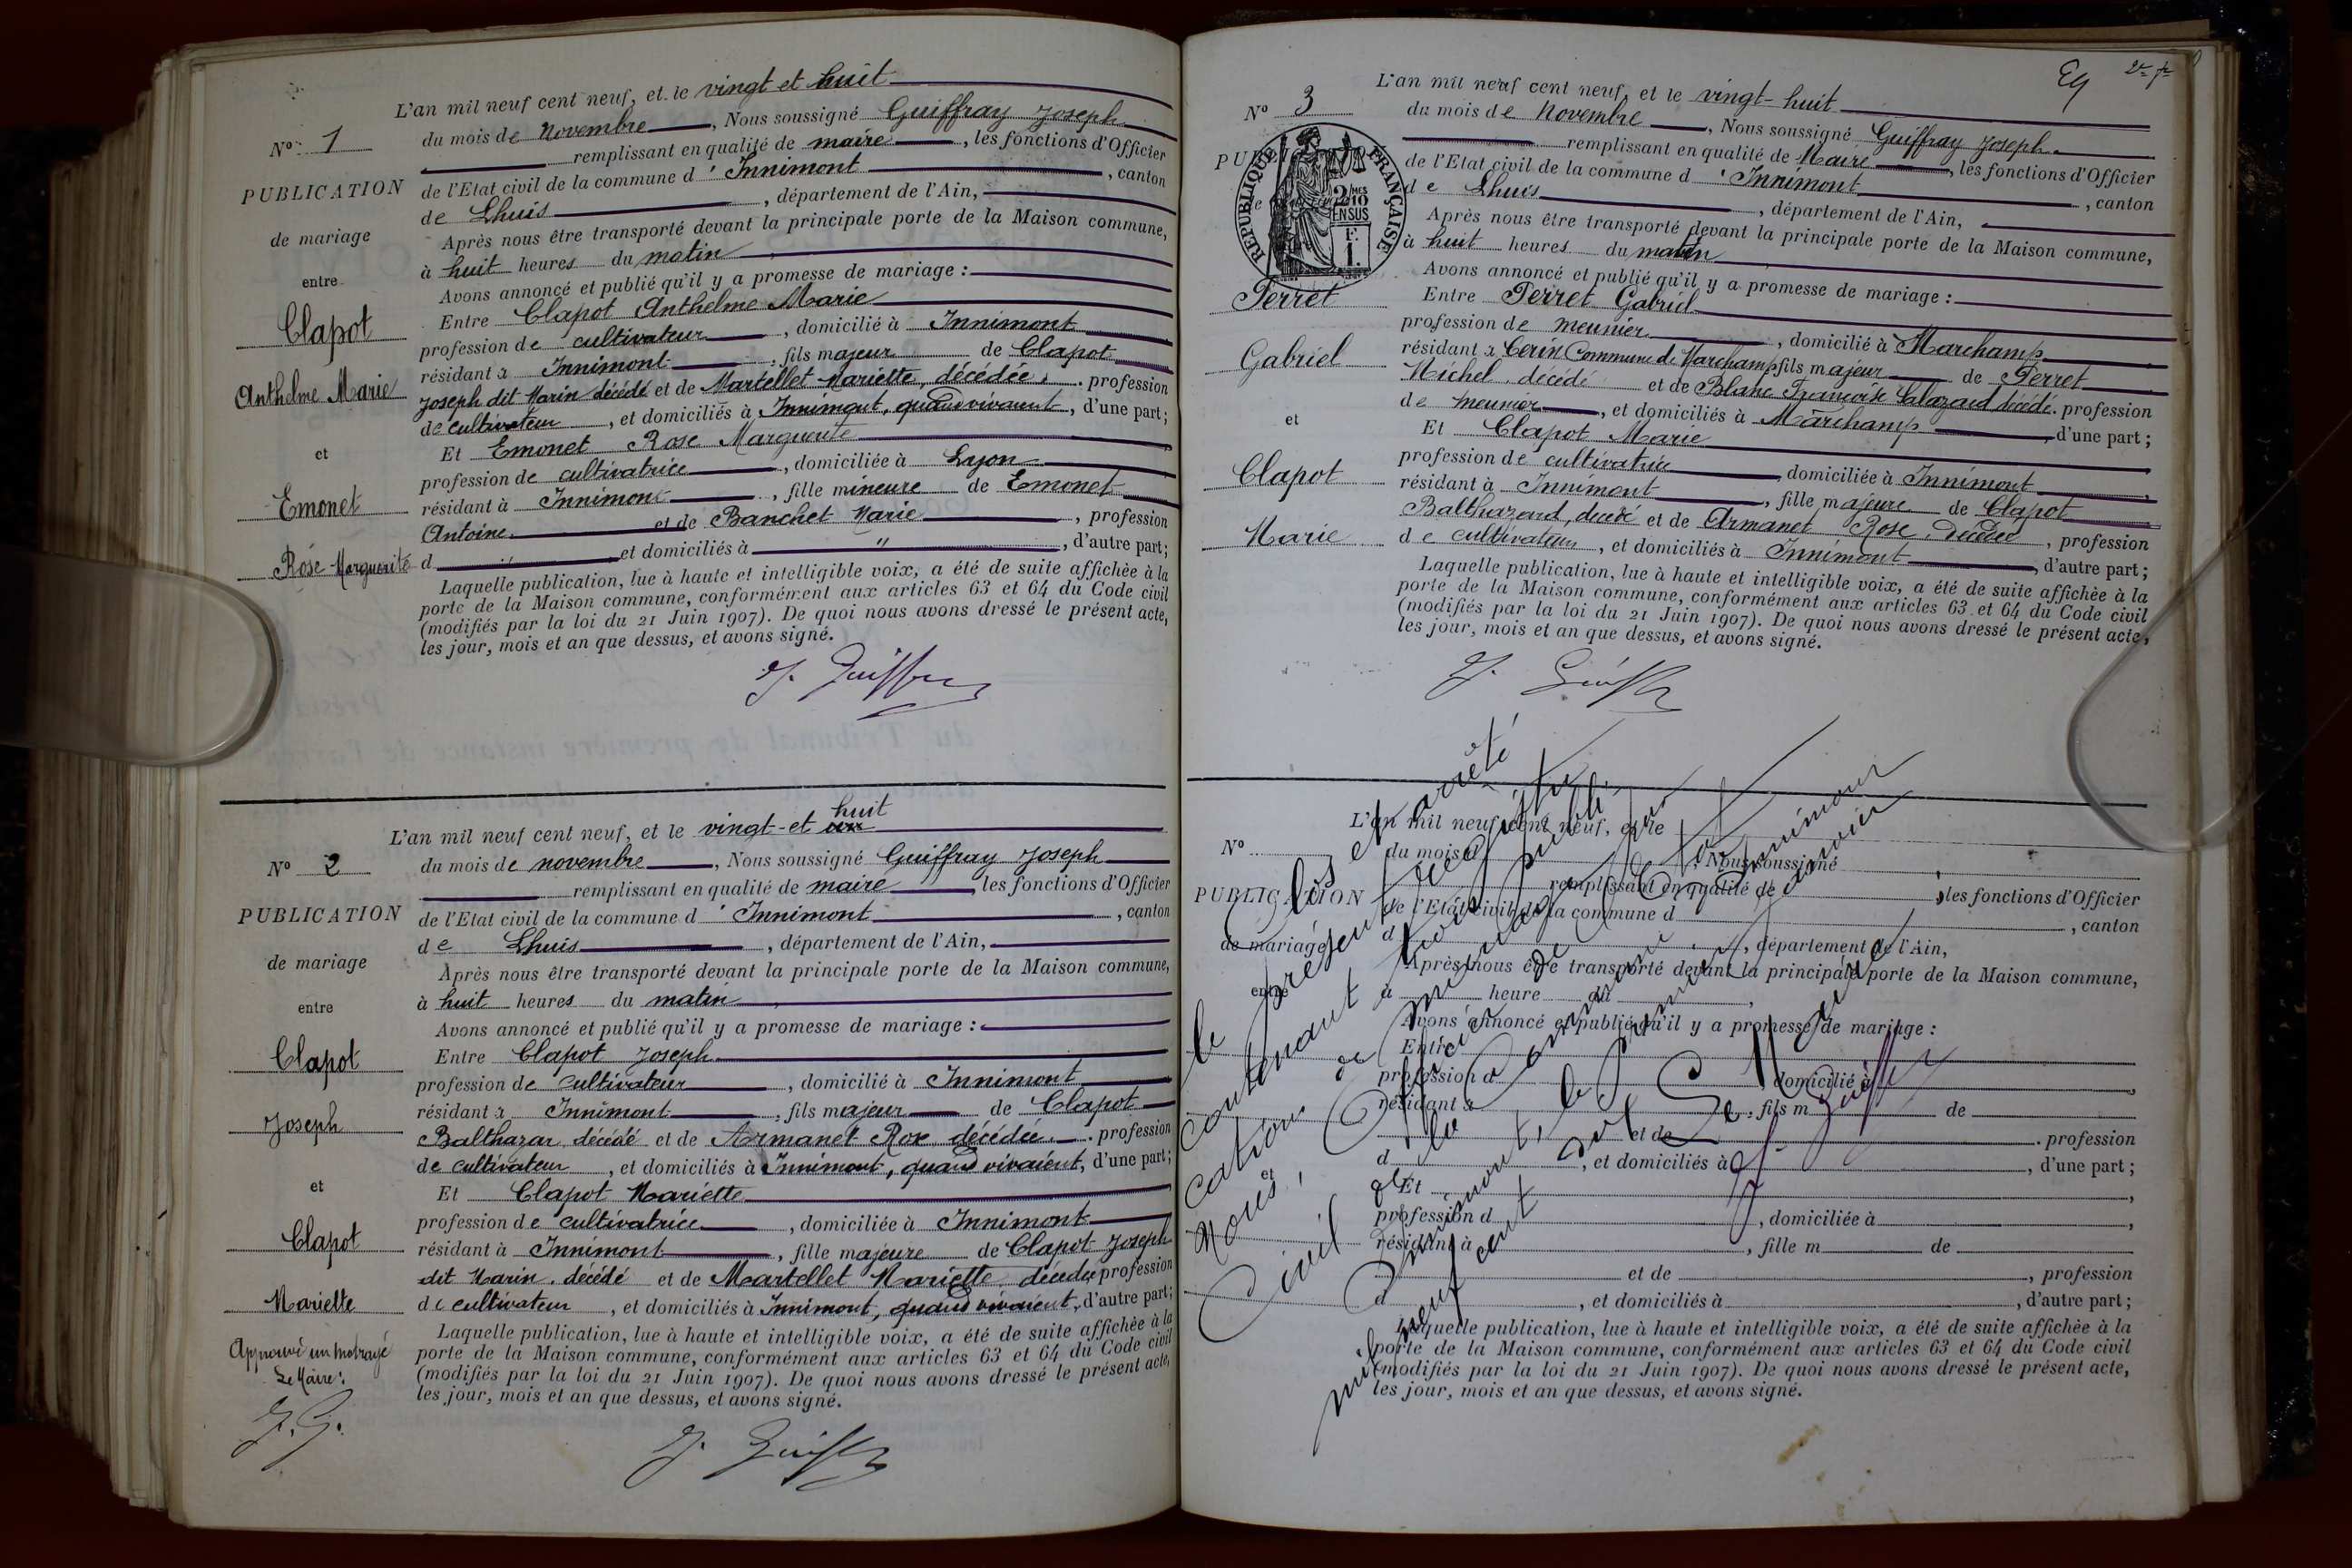 L'an mil neuf cent neuf, et le vingt et huit
N° 1
du mois de Novembre, Nous soussigné Guiffray Joseph
remplissant en qualité de maire, les fonctions d'Officier
PUBLICATION
de l'Etat civil de la commune d'Innimont, canton
de Lhuis, département de l'Ain,
de mariage
Après nous être transporté devant la principale porte de la Maison commune,
à huit heures du matin
entre
Avons annoncé et publié qu'il y a promesse de mariage :
Clapot
Entre Clapot Anthelme Marie
profession de cultivateur, domicilié à Innimont
Anthelme Marie
résidant à Innimont, fils majeur de Clapot
Joseph dit Marin décédé et de Martellet Mariette, décédée, profession
de cultivateur, et domiciliés à Innimont, quand vivaient, d'une part;
et
Et Emonet Rose Marguerite
profession de cultivatrice, domiciliée à Lyon
Emonet
résidant à Innimont, fille mineure de Emonet
Antoine et de Banchet Marie, profession
Rose Marguerite
d " et domiciliés à ", d'autre part;
Laquelle publication, lue à haute et intelligible voix, a été de suite affichée à la
porte de la Maison commune, conformément aux articles 63 et 64 du Code civil
(modifiés par la loi du 21 Juin 1907). De quoi nous avons dressé le présent acte,
les jour, mois et an que dessus, et avons signé.
J. Guiffray
L'an mil neuf cent neuf, et le vingt-et huit
N° 2
du mois de novembre, Nous soussigné Guiffray Joseph
remplissant en qualité de maire, les fonctions d'Officier
PUBLICATION
de l'Etat civil de la commune d'Innimont, canton
de Lhuis, département de l'Ain,
de mariage
Après nous être transporté devant la principale porte de la Maison commune,
à huit heures du matin,
entre
Avons annoncé et publié qu'il y a promesse de mariage :
Clapot
Entre Clapot Joseph
profession de cultivateur, domicilié à Innimont
Joseph
résidant à Innimont, fils majeur de Clapot
Balthazar décédé et de Armanet Rose décédée, profession
de cultivateur, et domiciliés à Innimont, quand vivaient, d'une part;
et
Et Clapot Mariette
profession de cultivatrice, domiciliée à Innimont
Clapot
résidant à Innimont, fille majeure de Clapot Joseph
dit Marin, décédé et de Martellet Mariette décédée profession
Mariette
de cultivateur, et domiciliés à Innimont, quand vivaient, d'autre part;
Laquelle publication, lue à haute et intelligible voix, a été de suite affichée à la
porte de la Maison commune, conformément aux articles 63 et 64 du Code civil
(modifiés par la loi du 21 Juin 1907). De quoi nous avons dressé le présent acte,
les jour, mois et an que dessus, et avons signé.
Approuvé un mot rayé
Le Maire :
J. G.
J. Guiffray
L'an mil neuf cent neuf, et le vingt-huit
N° 3
du mois de Novembre, Nous soussigné Guiffray Joseph
remplissant en qualité de Maire, les fonctions d'Officier
de l'Etat civil de la commune d'Innimont, canton
RÉPUBLIQUE FRANÇAISE
2/10MES EN SUS
de Lhuis, département de l'Ain,
Après nous être transporté devant la principale porte de la Maison commune,
à huit heures du matin
Avons annoncé et publié qu'il y a promesse de mariage :
Perret
Entre Perret Gabriel
profession de meunier, domicilié à Marchamp
Gabriel
résidant à Cerin Commune de Marchamp fils majeur de Perret
Michel, décédé et de Blanc Françoise décédé, profession
de meunier, et domiciliés à Marchamp, d'une part;
et
Et Clapot Marie
profession de cultivatrice, domiciliée à Innimont
Clapot
résidant à Innimont, fille majeure de Clapot
Balthazard, décédé et de Armanet Rose, décédée, profession
Marie
de cultivateur, et domiciliés à Innimont, d'autre part;
Laquelle publication, lue à haute et intelligible voix, a été de suite affichée à la
porte de la Maison commune, conformément aux articles 63 et 64 du Code civil
(modifiés par la loi du 21 Juin 1907). De quoi nous avons dressé le présent acte,
les jour, mois et an que dessus, et avons signé.
J. Guiffray
L'an mil neuf cent neuf, et le
N°
du mois d, Nous soussigné
remplissant en qualité de, les fonctions d'Officier
PUBLICATION
de l'Etat civil de la commune d, canton
d, département de l'Ain,
de mariage
Après nous être transporté devant la principale porte de la Maison commune,
à heure du,
entre
Avons annoncé et publié qu'il y a promesse de mariage :
Entre
profession d, domicilié à
résidant à, fils m de
et de, profession
d, et domiciliés à, d'une part;
et
Et
profession d, domiciliée à
résidant à, fille m de
et de, profession
d, et domiciliés à, d'autre part;
Laquelle publication, lue à haute et intelligible voix, a été de suite affichée à la
porte de la Maison commune, conformément aux articles 63 et 64 du Code civil
(modifiés par la loi du 21 Juin 1907). De quoi nous avons dressé le présent acte,
les jour, mois et an que dessus, et avons signé.
Clos et arrêté
le présent registre
contenant trois publi-
cations de mariage par
Nous, Officier de l'état
Civil de la Commune d'Innimont
Innimont, le premier Janvier
mil neuf cent dix
J. Guiffray